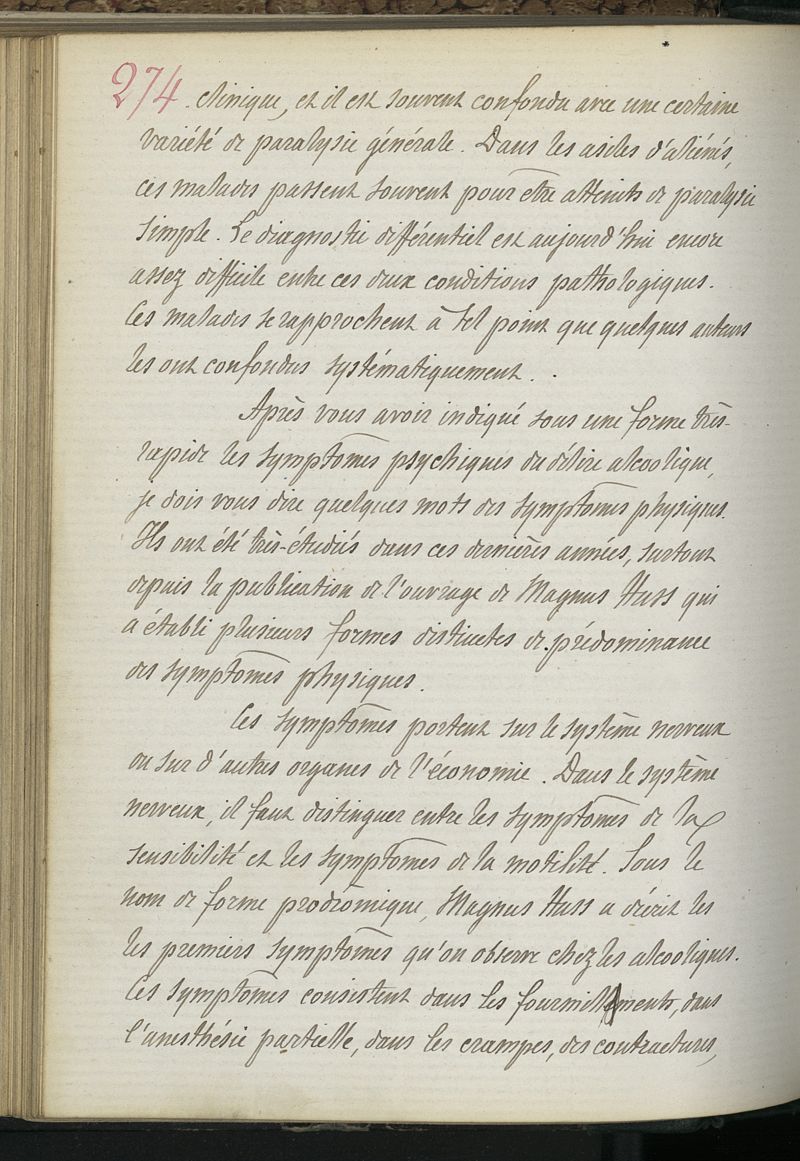 274. clinique, et il est souvent confondu avec une certaine
variété de paralysie générale. Dans les asiles d'aliénés,
ces malades passent souvent pour être atteints de paralysie
simple. Le diagnostic différentiel est aujourd'hui encore
assez difficile entre ces deux conditions pathologiques.
Ces malades se rapprochent à tel point que quelques auteurs
les ont confondus systématiquement.
Après vous avoir indiqué sous une forme très-
rapide les symptômes psychiques du délire alcoolique,
je dois vous dire quelques mots des symptômes physiques.
Ils ont été très-étudiés dans ces dernières années, surtout
depuis la publication de l'ouvrage de Magnus Huss qui
a établi plusieurs formes distinctes de prédominance
des symptômes physiques.
Ces symptômes portent sur le système nerveux
ou sur d'autres organes de l'économie. Dans le système
nerveux, il faut distinguer entre les symptômes de la
sensibilité et les symptômes de la motilité. Sous le
nom de forme prodromique, Magnus Huss a décrit les
les premiers symptômes qu'on observe chez les alcooliques.
Ces symptômes consistent dans les fourmillements, dans
l'anesthésie partielle, dans les crampes, des contractures,